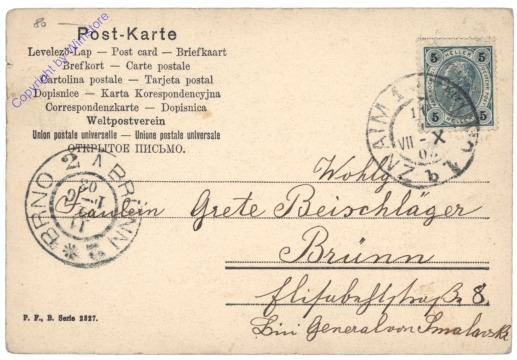 80
Post-Karte
Levelező-Lap — Post card — Briefkaart
Brefkort — Carte postale
Cartolina postale — Tarjeta postal
Dopisnice — Karta Korespondencyjna
Correspondenzkarte — Dopisnica
Weltpostverein
Union postale universelle — Unione postale universale
ОТКРЫТОЕ ПИСЬМО.
Copyright by Winstore
5 HELLER 5
5 5
ZNAIM
VII X
BRNO 2 BRÜNN 2
Wohlg
Fräulein Grete Beischläger
Brünn
Elisabethstraße 8.
bei General von
P. F., B. Serie 2827.